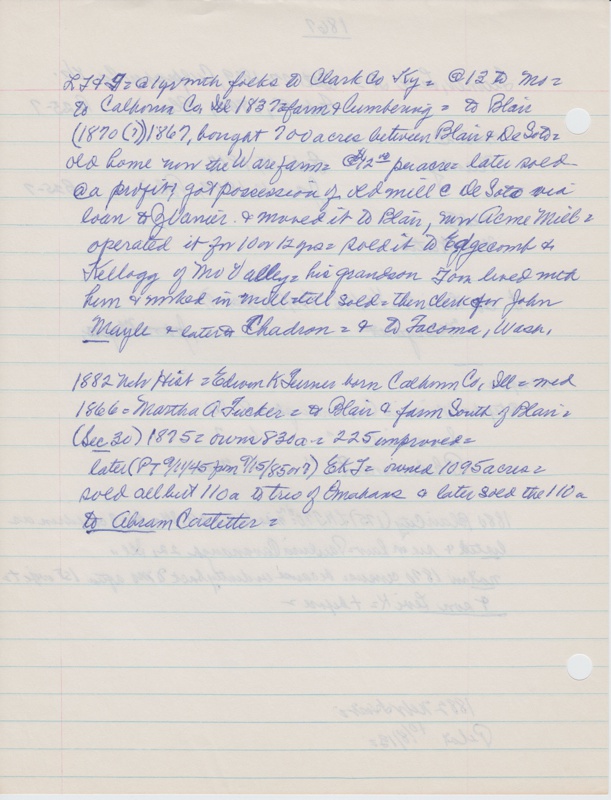 = @ 1 yr with folks to Clark Co Ky = @ 12 to Mo =
to Calhoun Co, Ill 1837 = farm & lumbering = to Blair
(1870(?)) 1867, bought 700 acres between Blair & DeSoto =
old home now the Ware farm = $12 00 per acre = later sold
@ a profit, got possession of old mill @ De Soto via
loan to & moved it to Blair, now Acme Mill =
operated it for 10 or 12 yrs = sold it to Edgecomb &
Kellogg of Mo Valley = his grandson Tom lived with
him & worked in mill till sold = then clerk for John
Mayle & later to Chadron = & to Tacoma, Wash.
1882 Neb Hist = Edson K Turner born Calhoun Co, Ill = md
1866 = Martha A Tucker = to Blair & farm South of Blair =
(Sec 30) 1875 = own 830 a = 225 improved =
later (PT 9/11/45 from 9/15/85 or 7) EKT = owned 1095 acres =
sold all but 110 a to trio of Omahans & later sold the 110 a
to Abram Castetter =
1867